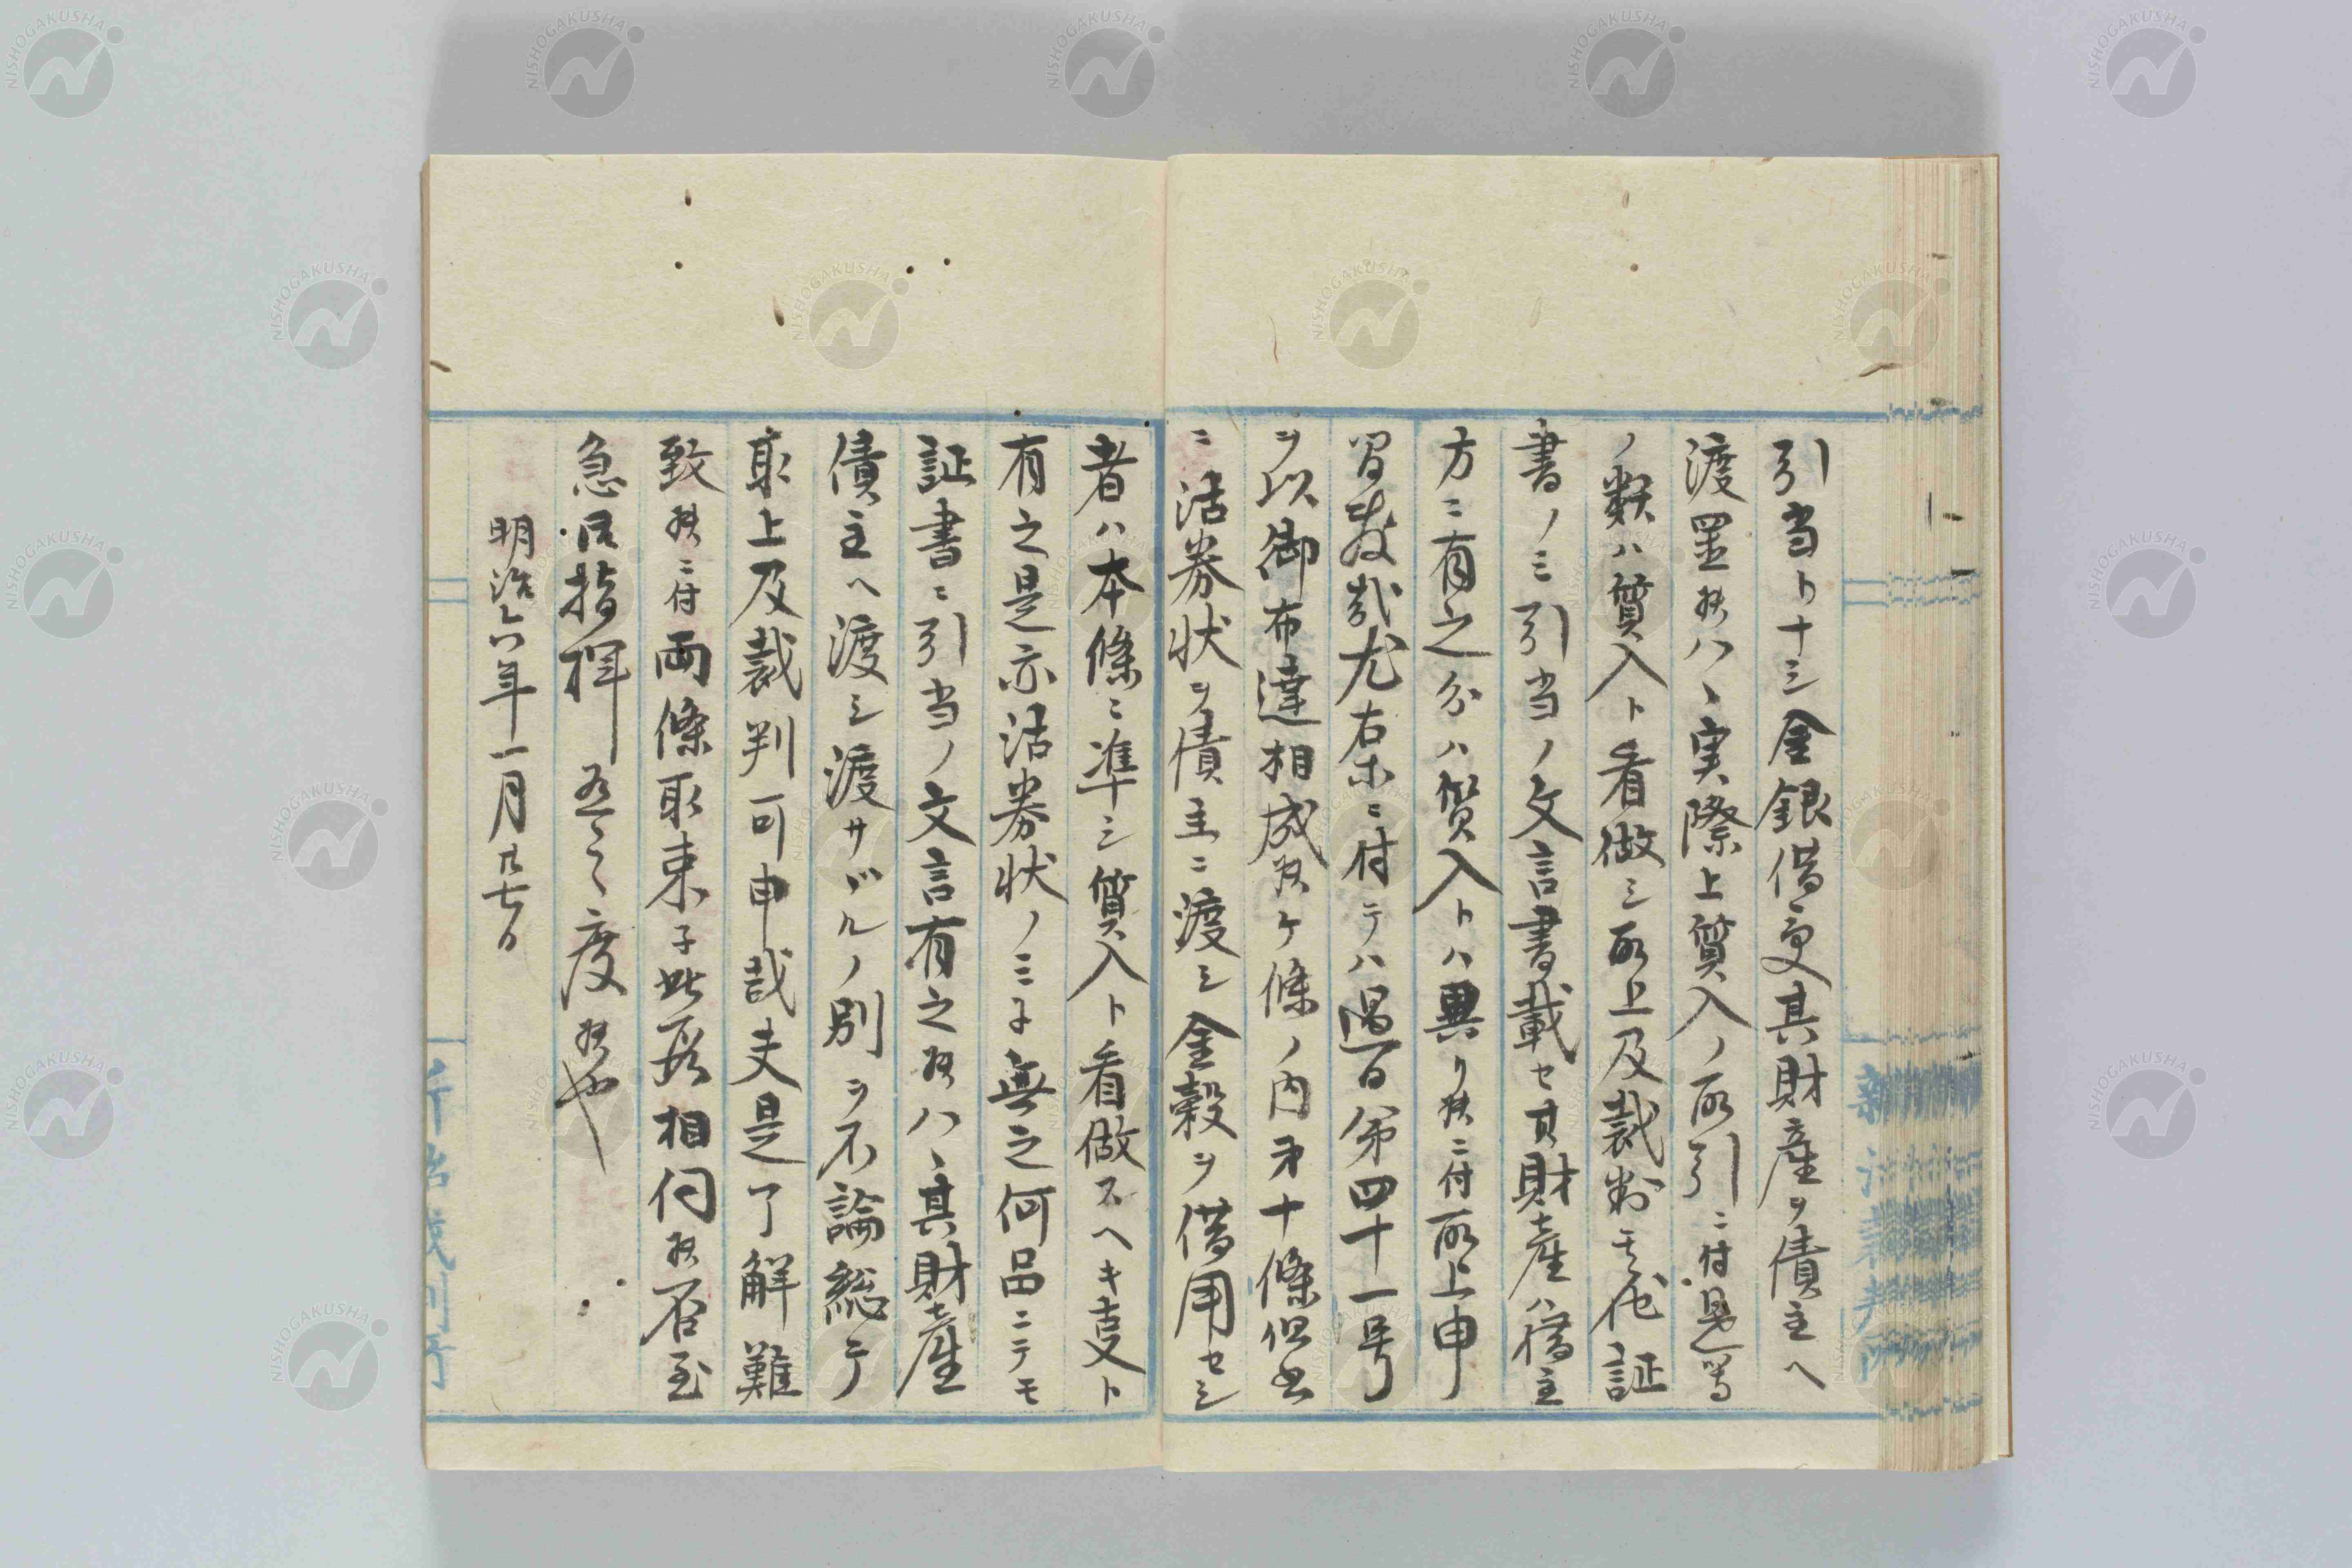 引当トナシ金銀借受其財産ヲ債主ヘ
渡置候ハヽ実際上質入ノ取引ニ付是等
ノ類ハ質入ト看做シ取上及裁判其他証
書ノミ引当ノ文言書載セ其財産ハ借主
方ニ有之分ハ質入トハ異リ候ニ付取上申
間敷哉尤右等ニ付テハ過日第四十一号
ヲ以御布達相成候ケ條ノ内第十條但書
ニ沽券状ヲ債主ニ渡シ金穀ヲ借用セシ
者ハ本條ニ準シ質入ト看做スヘキ支ト
有之是亦沽券状ノミニ無之何品ニテモ
証書ニ引当ノ文言有之候ハヽ其財産
債主ヘ渡シ渡サヾルノ別ヲ不論総テ
取上及裁判可申哉夫是了解難
致候ニ付両條取束子此段相伺候否至
急御指揮有之度候也
明治六年一月廿七日
NISHOGAKUSHA